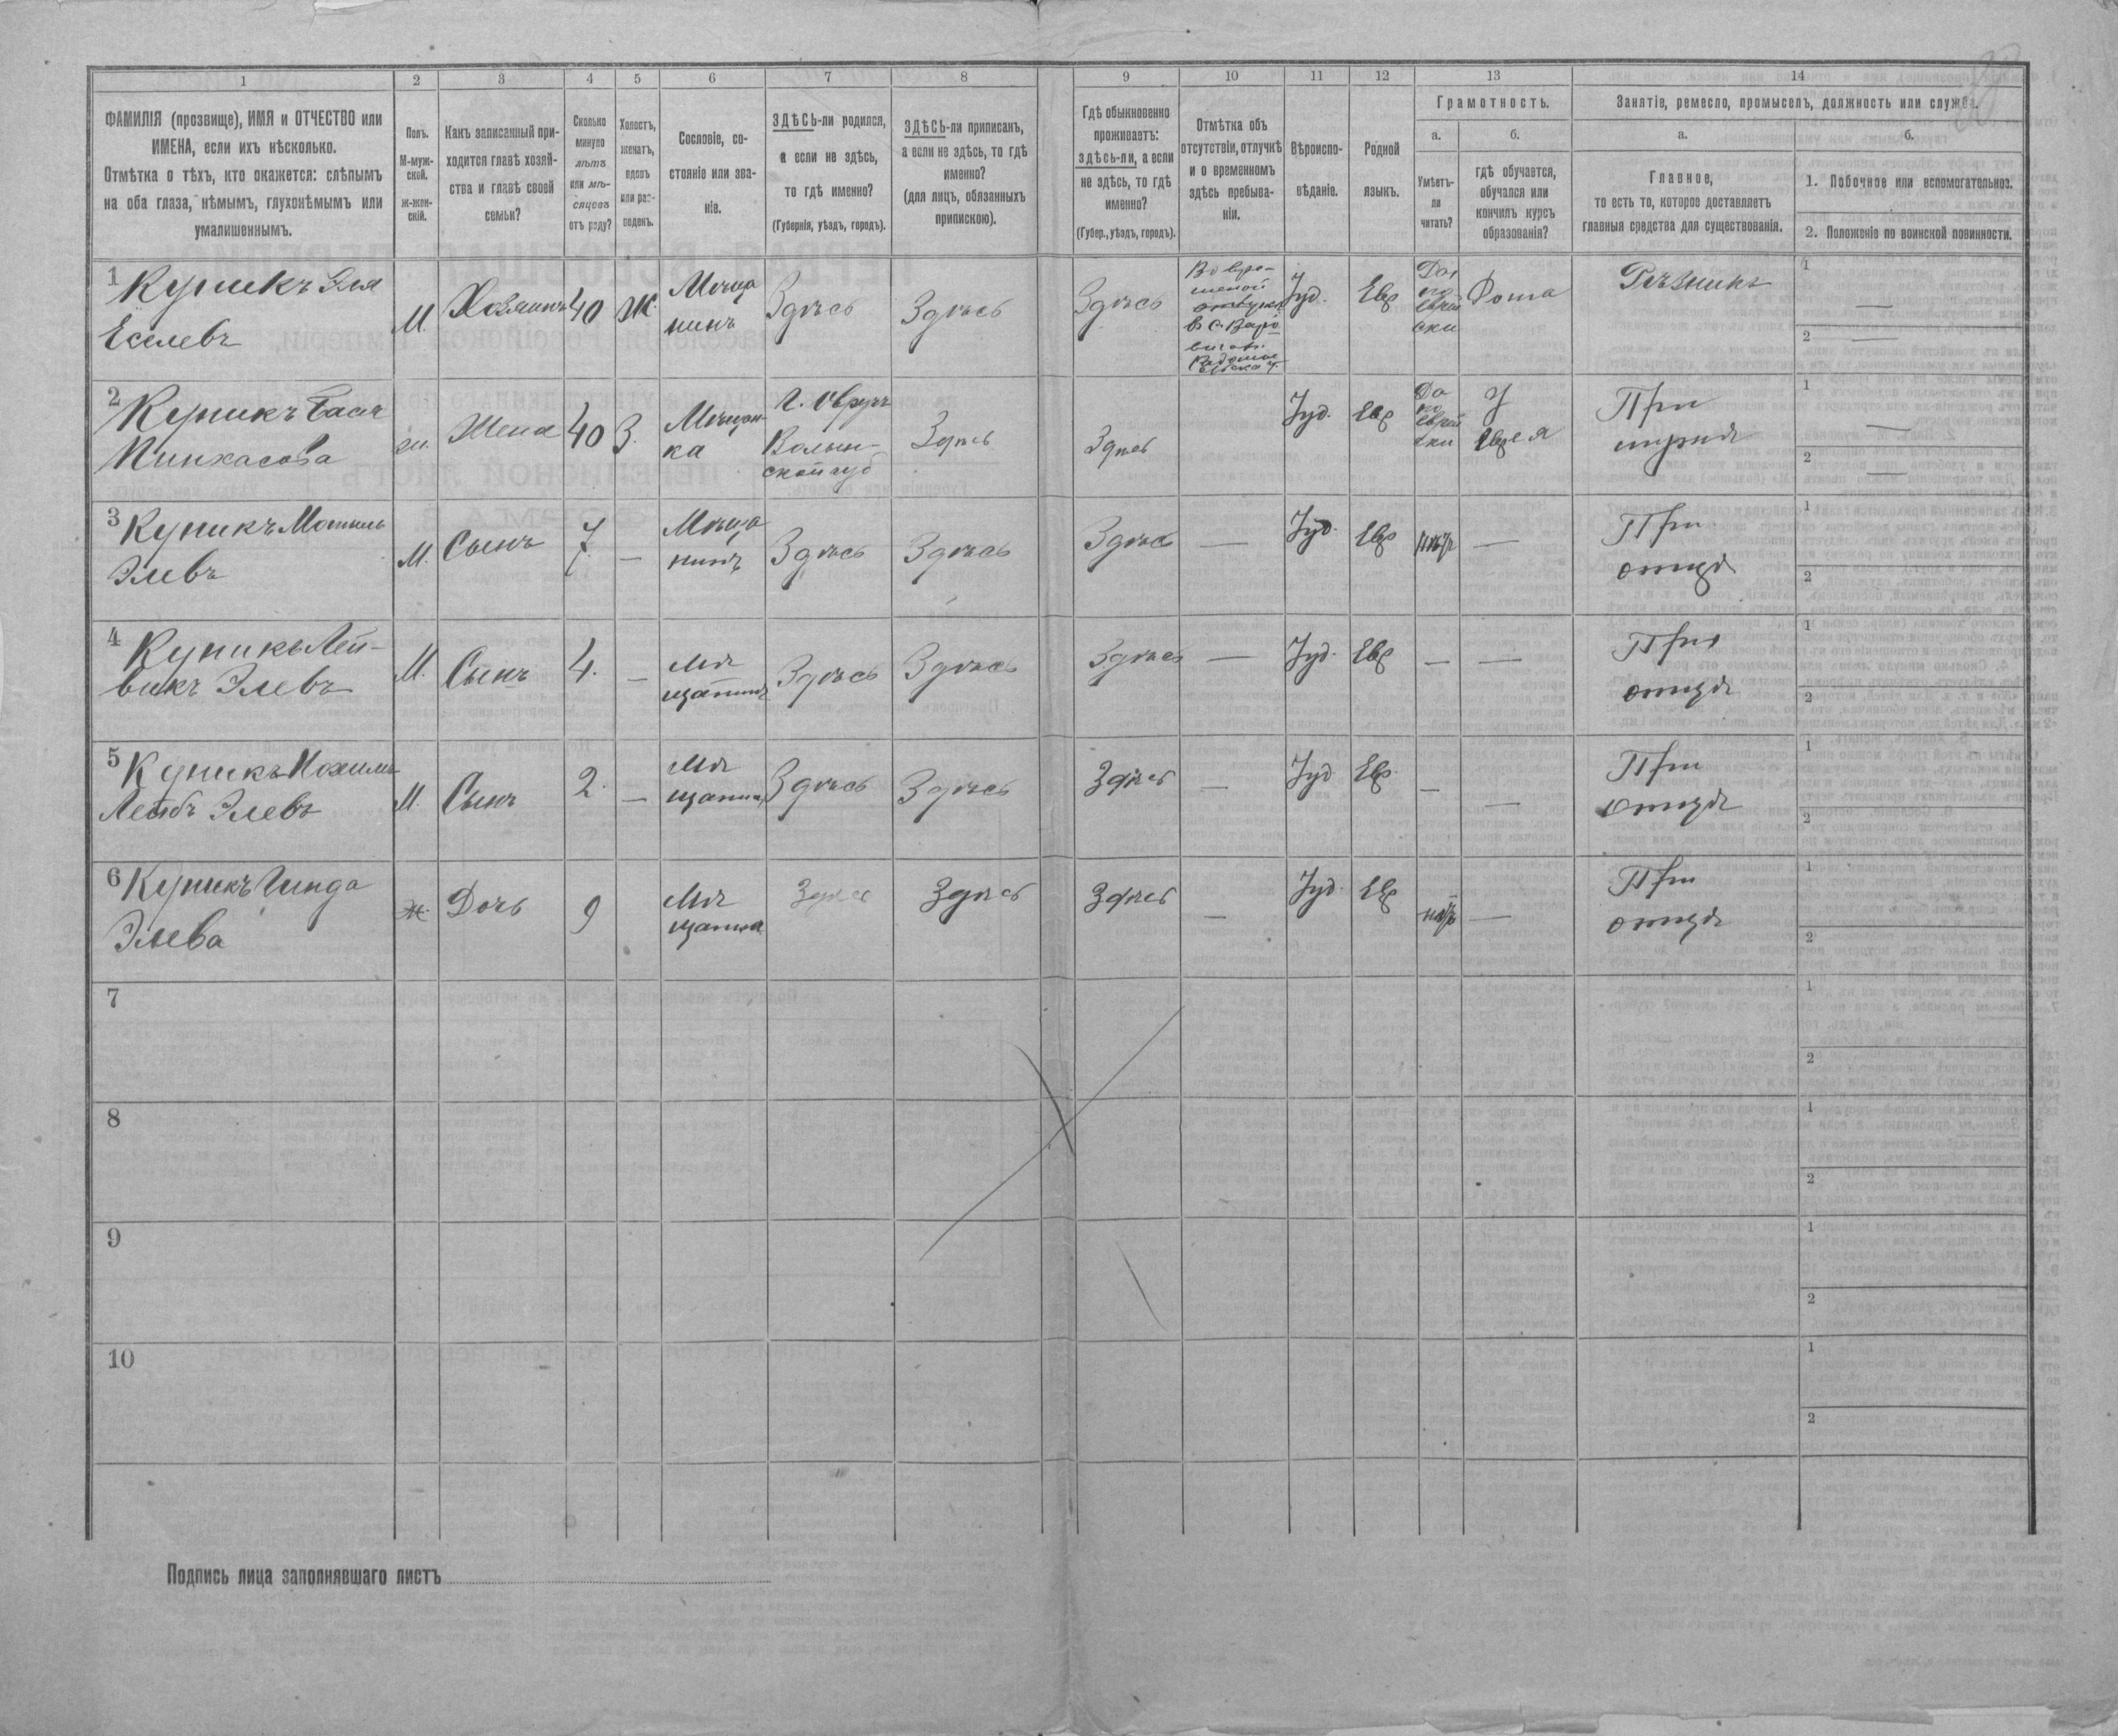 1 2 3 4 5 6 7 8 9 10 11 12 13 14
ФАМИЛІЯ (прозвище), ИМЯ и ОТЧЕСТВО или
ИМЕНА, если ихъ нѣсколько.
Отмѣтка о тѣхъ, кто окажется: слѣпымъ
на оба глаза, нѣмымъ, глухонѣмымъ или
умалишеннымъ.
Полъ.
М-муж-
ской.
ж-жен-
скій.
Какъ записанный при-
ходится главѣ хозяй-
ства и главѣ своей
семьи?
Сколько
минуло
лѣтъ
или мѣ-
сяцевъ
отъ роду?
Холостъ,
женатъ,
вдовъ
или раз-
веденъ.
Сословіе, со-
стояніе или зва-
ніе.
ЗДѢСЬ-ли родился,
а если не здѣсь,
то гдѣ именно?
(Губернія, уѣздъ, городъ).
ЗДѢСЬ-ли приписанъ,
а если не здѣсь, то гдѣ
именно?
(для лицъ, обязанныхъ
припискою).
Гдѣ обыкновенно
проживаетъ:
здѣсь-ли, а если
не здѣсь, то гдѣ
именно?
(Губер., уѣздъ, городъ).
Отмѣтка объ
отсутствіи, отлучкѣ
и о временномъ
здѣсь пребыва-
ніи.
Вѣроиспо-
вѣданіе.
Родной
языкъ.
Грамотность.
а.
Умѣетъ-
ли
читать?
б.
гдѣ обучается,
обучался или
кончилъ курсъ
образованія?
Занятіе, ремесло, промыселъ, должность или служба.
а.
Главное,
то есть то, которое доставляетъ
главныя средства для существованія.
б.
1. Побочное или вспомогательное.
2. Положеніе по воинской повинности.
1 Куникъ Эля
Еселевъ
М.
Хозяинъ
40
Ж.
Мѣща
нинъ
Здѣсь
Здѣсь
Здѣсь
Во вре-
меной
отлучк
в с.
Іуд.
Евр
Да
по
еврей
ски
Дома
Рѣзникъ
1 —
2 —
2 Куникъ Бася
Пинхасова
ж.
Жена
40
З.
Мѣщан-
ка
г. Овручъ
Волын-
ской губ
Здѣсь
Здѣсь
Іуд.
Евр
Да
по
еврей
ски
У
еврея
При
мужѣ
1 —
2 —
3 Куникъ Мотель
Элевъ
М.
Сынъ
7
—
Мѣща
нинъ
Здѣсь
Здѣсь
Здѣсь
—
Іуд.
Евр
нѣтъ
—
При
отцѣ
1
2
4 Куникъ Лей-
викъ Элевъ
М.
Сынъ
4.
—
Мѣ
щанинъ
Здѣсь
Здѣсь
Здѣсь
—
Іуд.
Евр
—
—
При
отцѣ
1
2
5 Куникъ
Лейбъ Элевъ
М.
Сынъ
2.
—
Мѣ
щанин
Здѣсь
Здѣсь
Здѣсь
—
Іуд
Евр.
—
—
При
отцѣ
1
2
6 Куникъ Гинда
Элева
Ж.
Дочь
9
Мѣ
щанка
Здѣсь
Здѣсь
Здѣсь
—
Іуд.
Евр
нѣтъ
—
При
отцѣ
1
2
7
1
2
8
1
2
9
1
2
10
1
2
Подпись лица заполнявшаго листъ